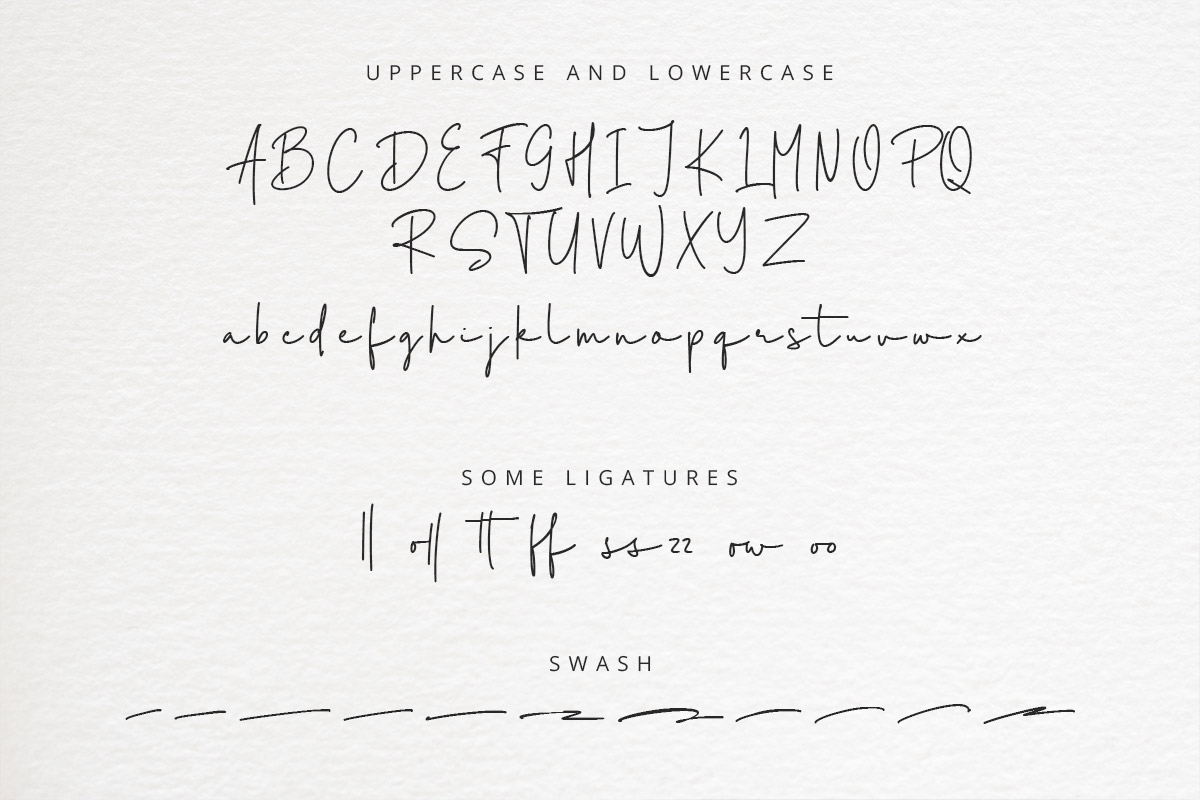 UPPERCASE AND LOWERCASE
ABCDEFGHIJKLMNOPQ
RSTUVWXYZ
abcdefghijklmnopqrstuvwx
SOME LIGATURES
ll oll tt ff ss zz ow oo
SWASH